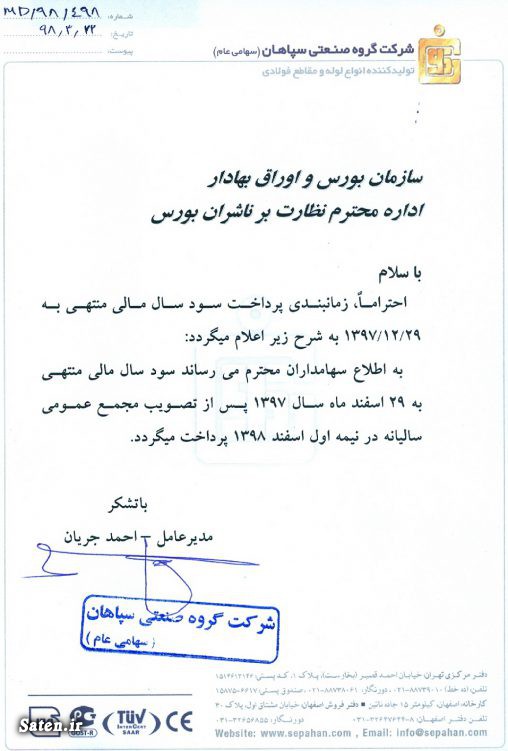 شماره: MD/۹۸/۴۹۸
تاریخ: ۹۸,۳,۲۲
پیوست:
شرکت گروه صنعتی سپاهان (سهامی عام)
تولیدکننده انواع لوله و مقاطع فولادی
سازمان بورس و اوراق بهادار
اداره محترم نظارت بر ناشران بورس
با سلام
احتراماً، زمانبندی پرداخت سود سال مالی منتهی به
۱۳۹۷/۱۲/۲۹ به شرح زیر اعلام میگردد:
به اطلاع سهامداران محترم می رساند سود سال مالی منتهی
به ۲۹ اسفند ماه سال ۱۳۹۷ پس از تصویب مجمع عمومی
سالیانه در نیمه اول اسفند ۱۳۹۸ پرداخت میگردد.
باتشکر
مدیرعامل – احمد جریان
شرکت گروه صنعتی سپاهان
(سهامی عام)
دفتر مرکزی تهران: خیابان احمد قصیر (بخارست)، پلاک ۱، کدپستی:
تلفن: (۵ خط) ۰۲۱-۸۸۷۳۹۰۱۰، دورنگار: ۰۲۱-۸۸۷۳۸۰۶۱، صندوق پستی: ۱۵۸۷۵-۶۶۱۷
کارخانه: اصفهان، کیلومتر ۱۵ جاده نائین • دفتر فروش اصفهان: خیابان مشتاق اول، پلاک ۳۰
تلفن دفتر اصفهان: دورنگار: ۰۳۱-۳۲۶۵۶۸۵۵
Website: www.sepahan.com , Email: info@sepahan.com
GOST-R
TÜV
INTERCERT
SAAR
CE
Saten.ir